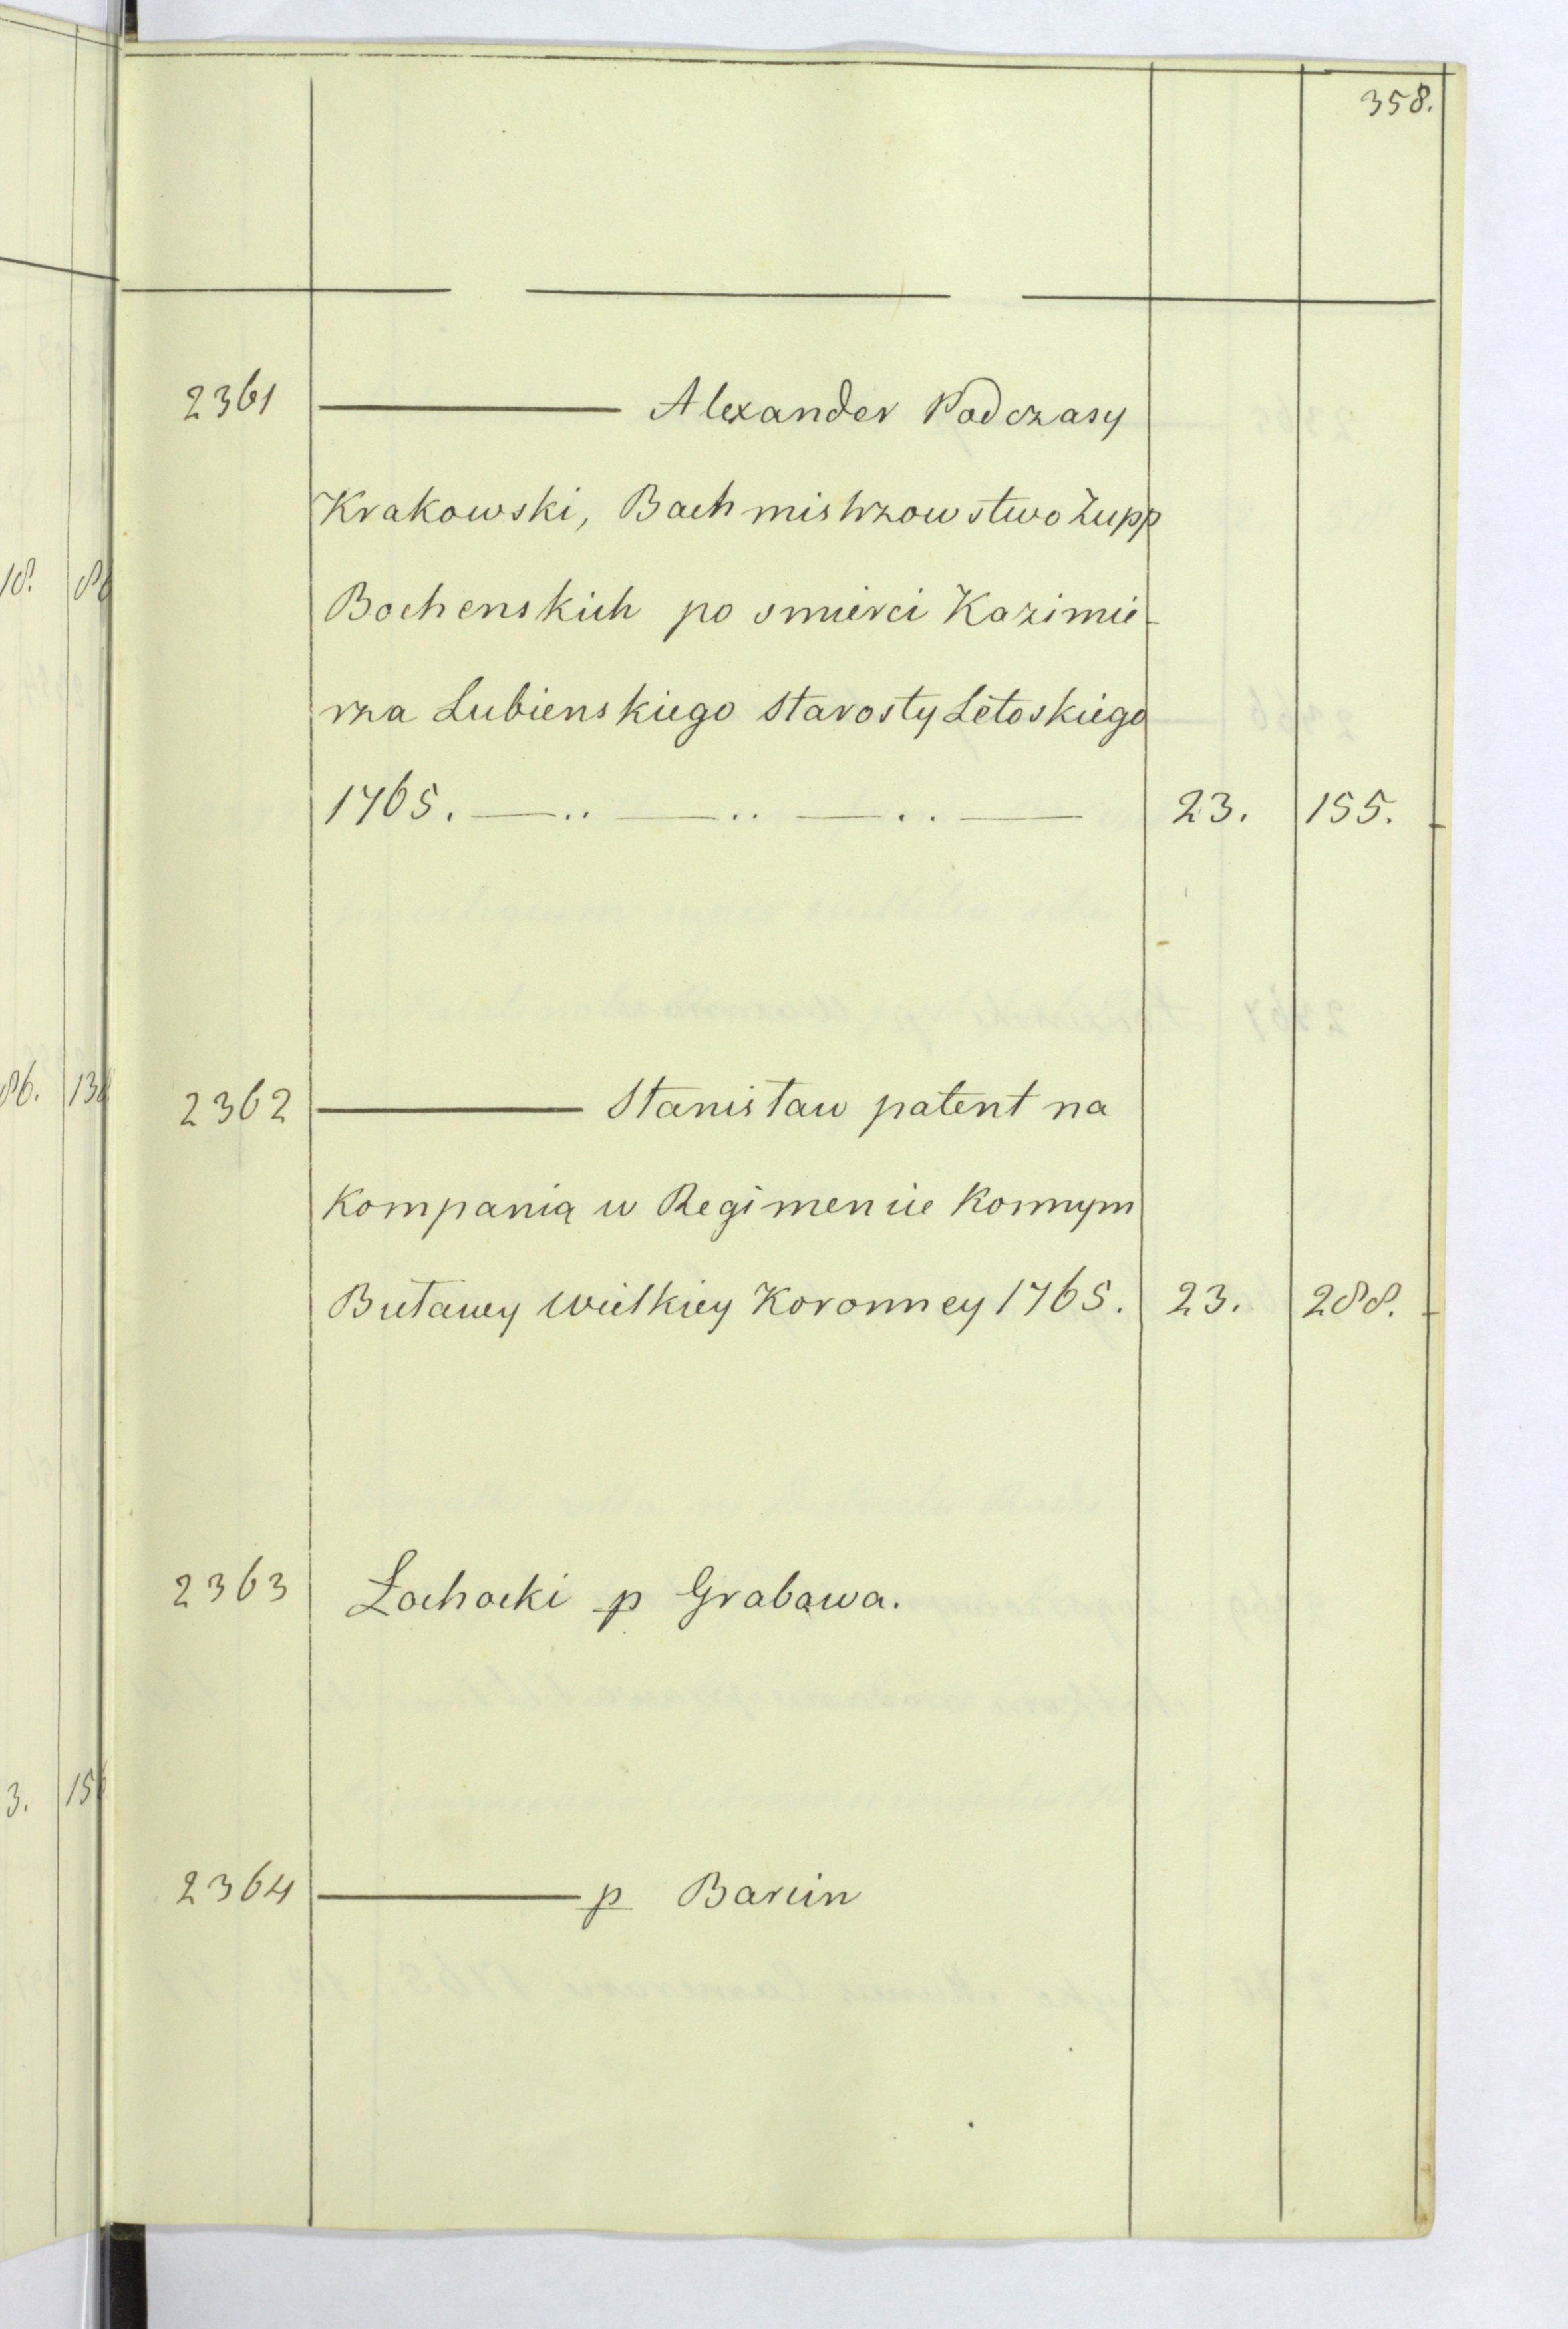 358.
2361 ——— Alexander Podczasy
Krakowski, Bachmistrzowstwo Żupp
Bochenskich po smierci Kazimie-
rza Lubienskiego Starosty Letoskiego
1765. —..—..—..— 23. 155.
2362 ——— Stanisław patent na
Kompanią w Regimencie Konnym
Buławy Wielkiey Koronney 1765. 23. 288.
2363 Łochocki p Grabowa.
2364 ——— p Barcin